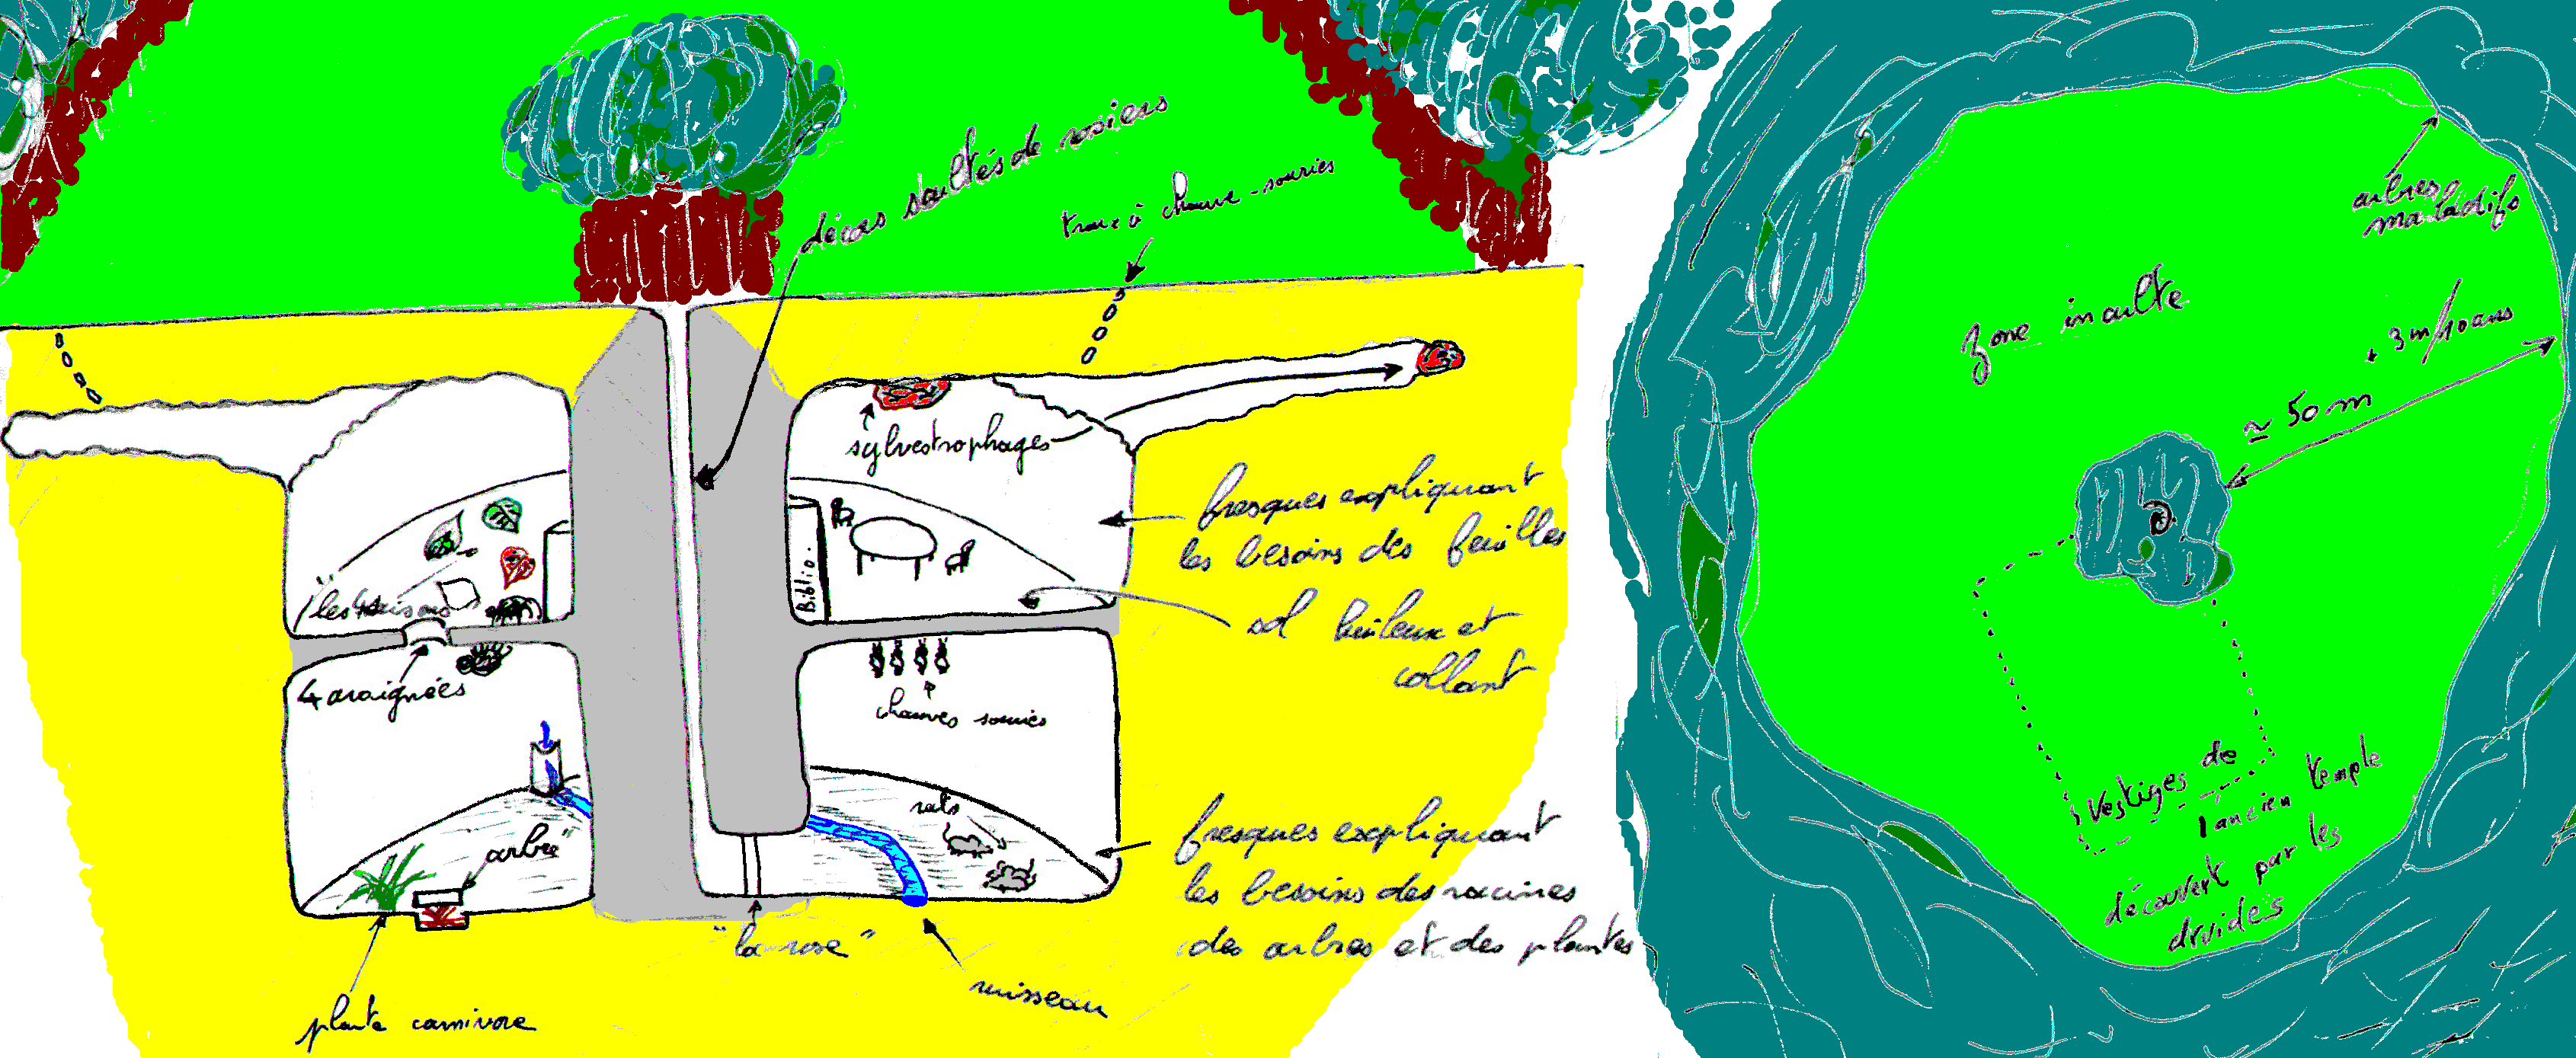 décors scultés de rosiers
troux à chauve-souries
sylvestrophages
fresques expliquant
les besoins des feuilles
Biblio.
"les saisons"
sol huileux et
collant
4 araignées
chauves souries
rats
"arbre"
fresques expliquant
les besoins des racines
des arbres et des plantes
"la rose"
ruisseau
plante carnivore
arbres
maladifs
zone inculte
+ 3m/10ans
≃ 50 m
Vestiges de
l ancien temple
découvert par les
druides